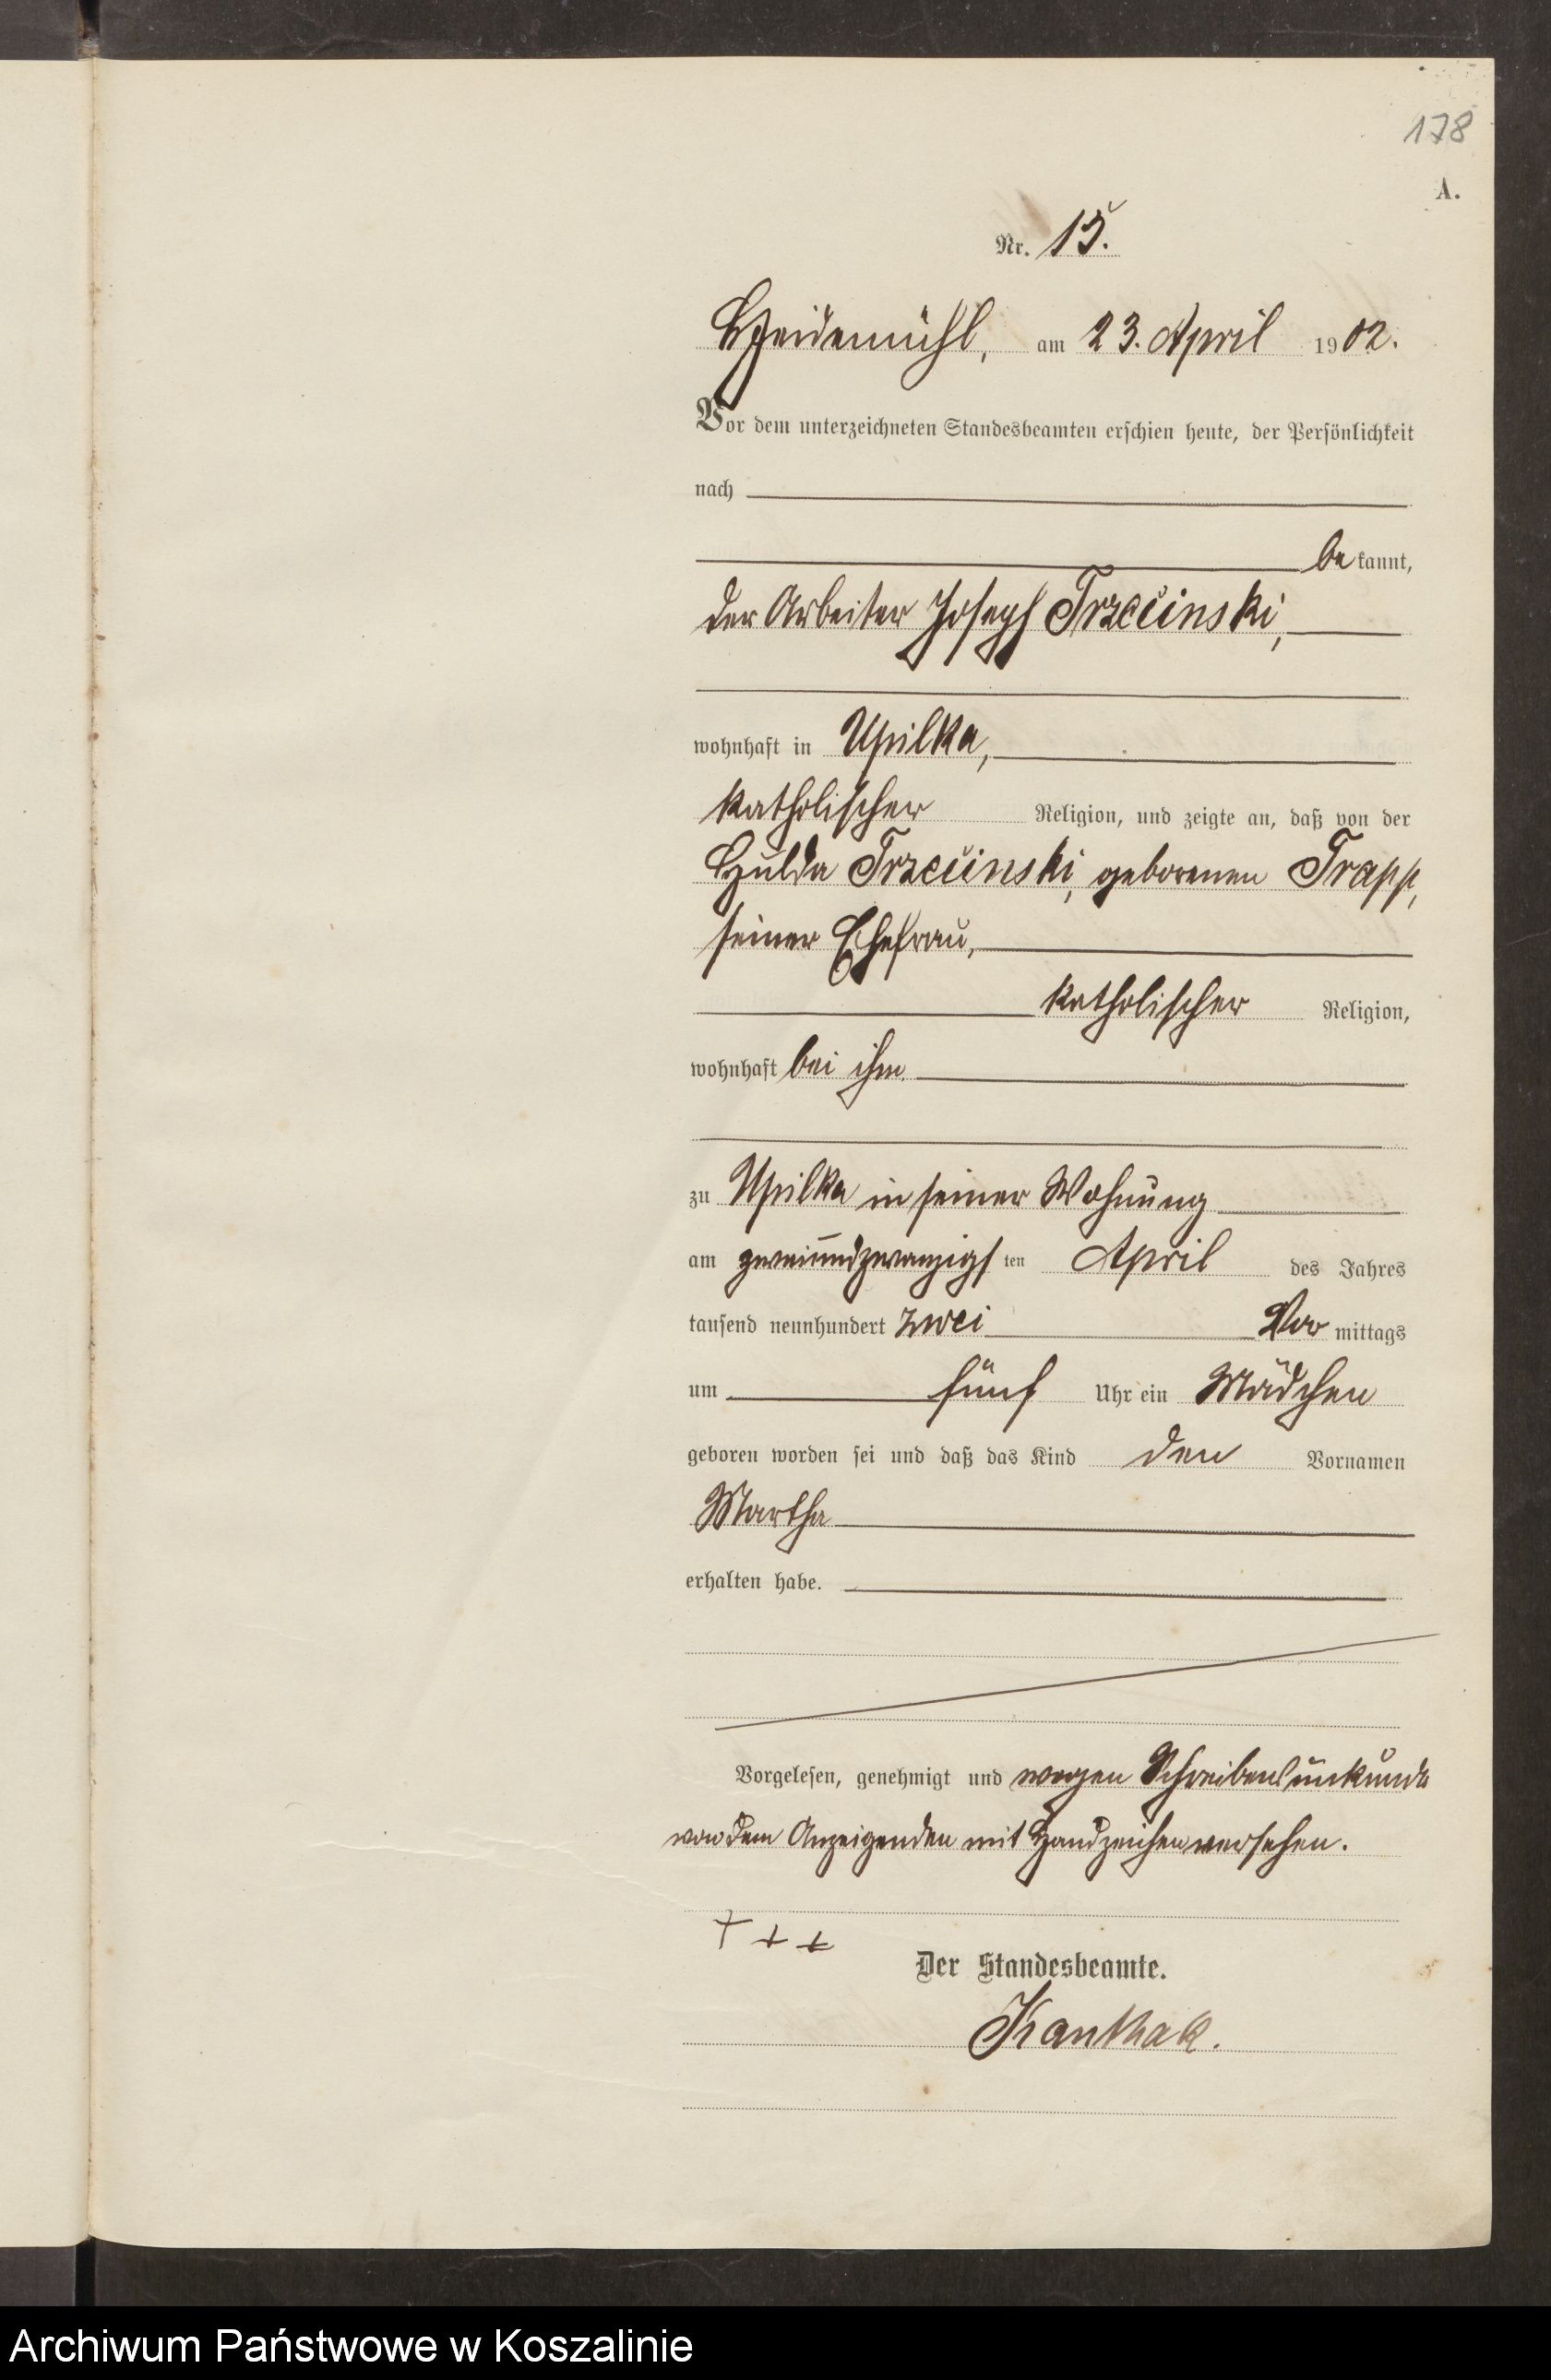 178
A.
Nr. 15.
Heidemühl, am 23. April 1902.
Vor dem unterzeichneten Standesbeamten erschien heute, der Persönlichkeit
nach
bekannt,
der Arbeiter Joseph Trzeiinski,
wohnhaft in Upilka,
katholischer Religion, und zeigte an, daß von der
Hulda Trzeiinski, geborenen Trapp,
seiner Ehefrau,
katholischer Religion,
wohnhaft bei ihm
zu Upilka in seiner Wohnung
am zweiundzwanzigsten April des Jahres
tausend neunhundert zwei Vor mittags
um fünf Uhr ein Mädchen
geboren worden sei und daß das Kind den Vornamen
Martha
erhalten habe.
Vorgelesen, genehmigt und wegen Schreibensunkunde
von dem Anzeigenden mit Handzeichen versehen.
+ + +
Der Standesbeamte.
Kanthak.
Archiwum Państwowe w Koszalinie